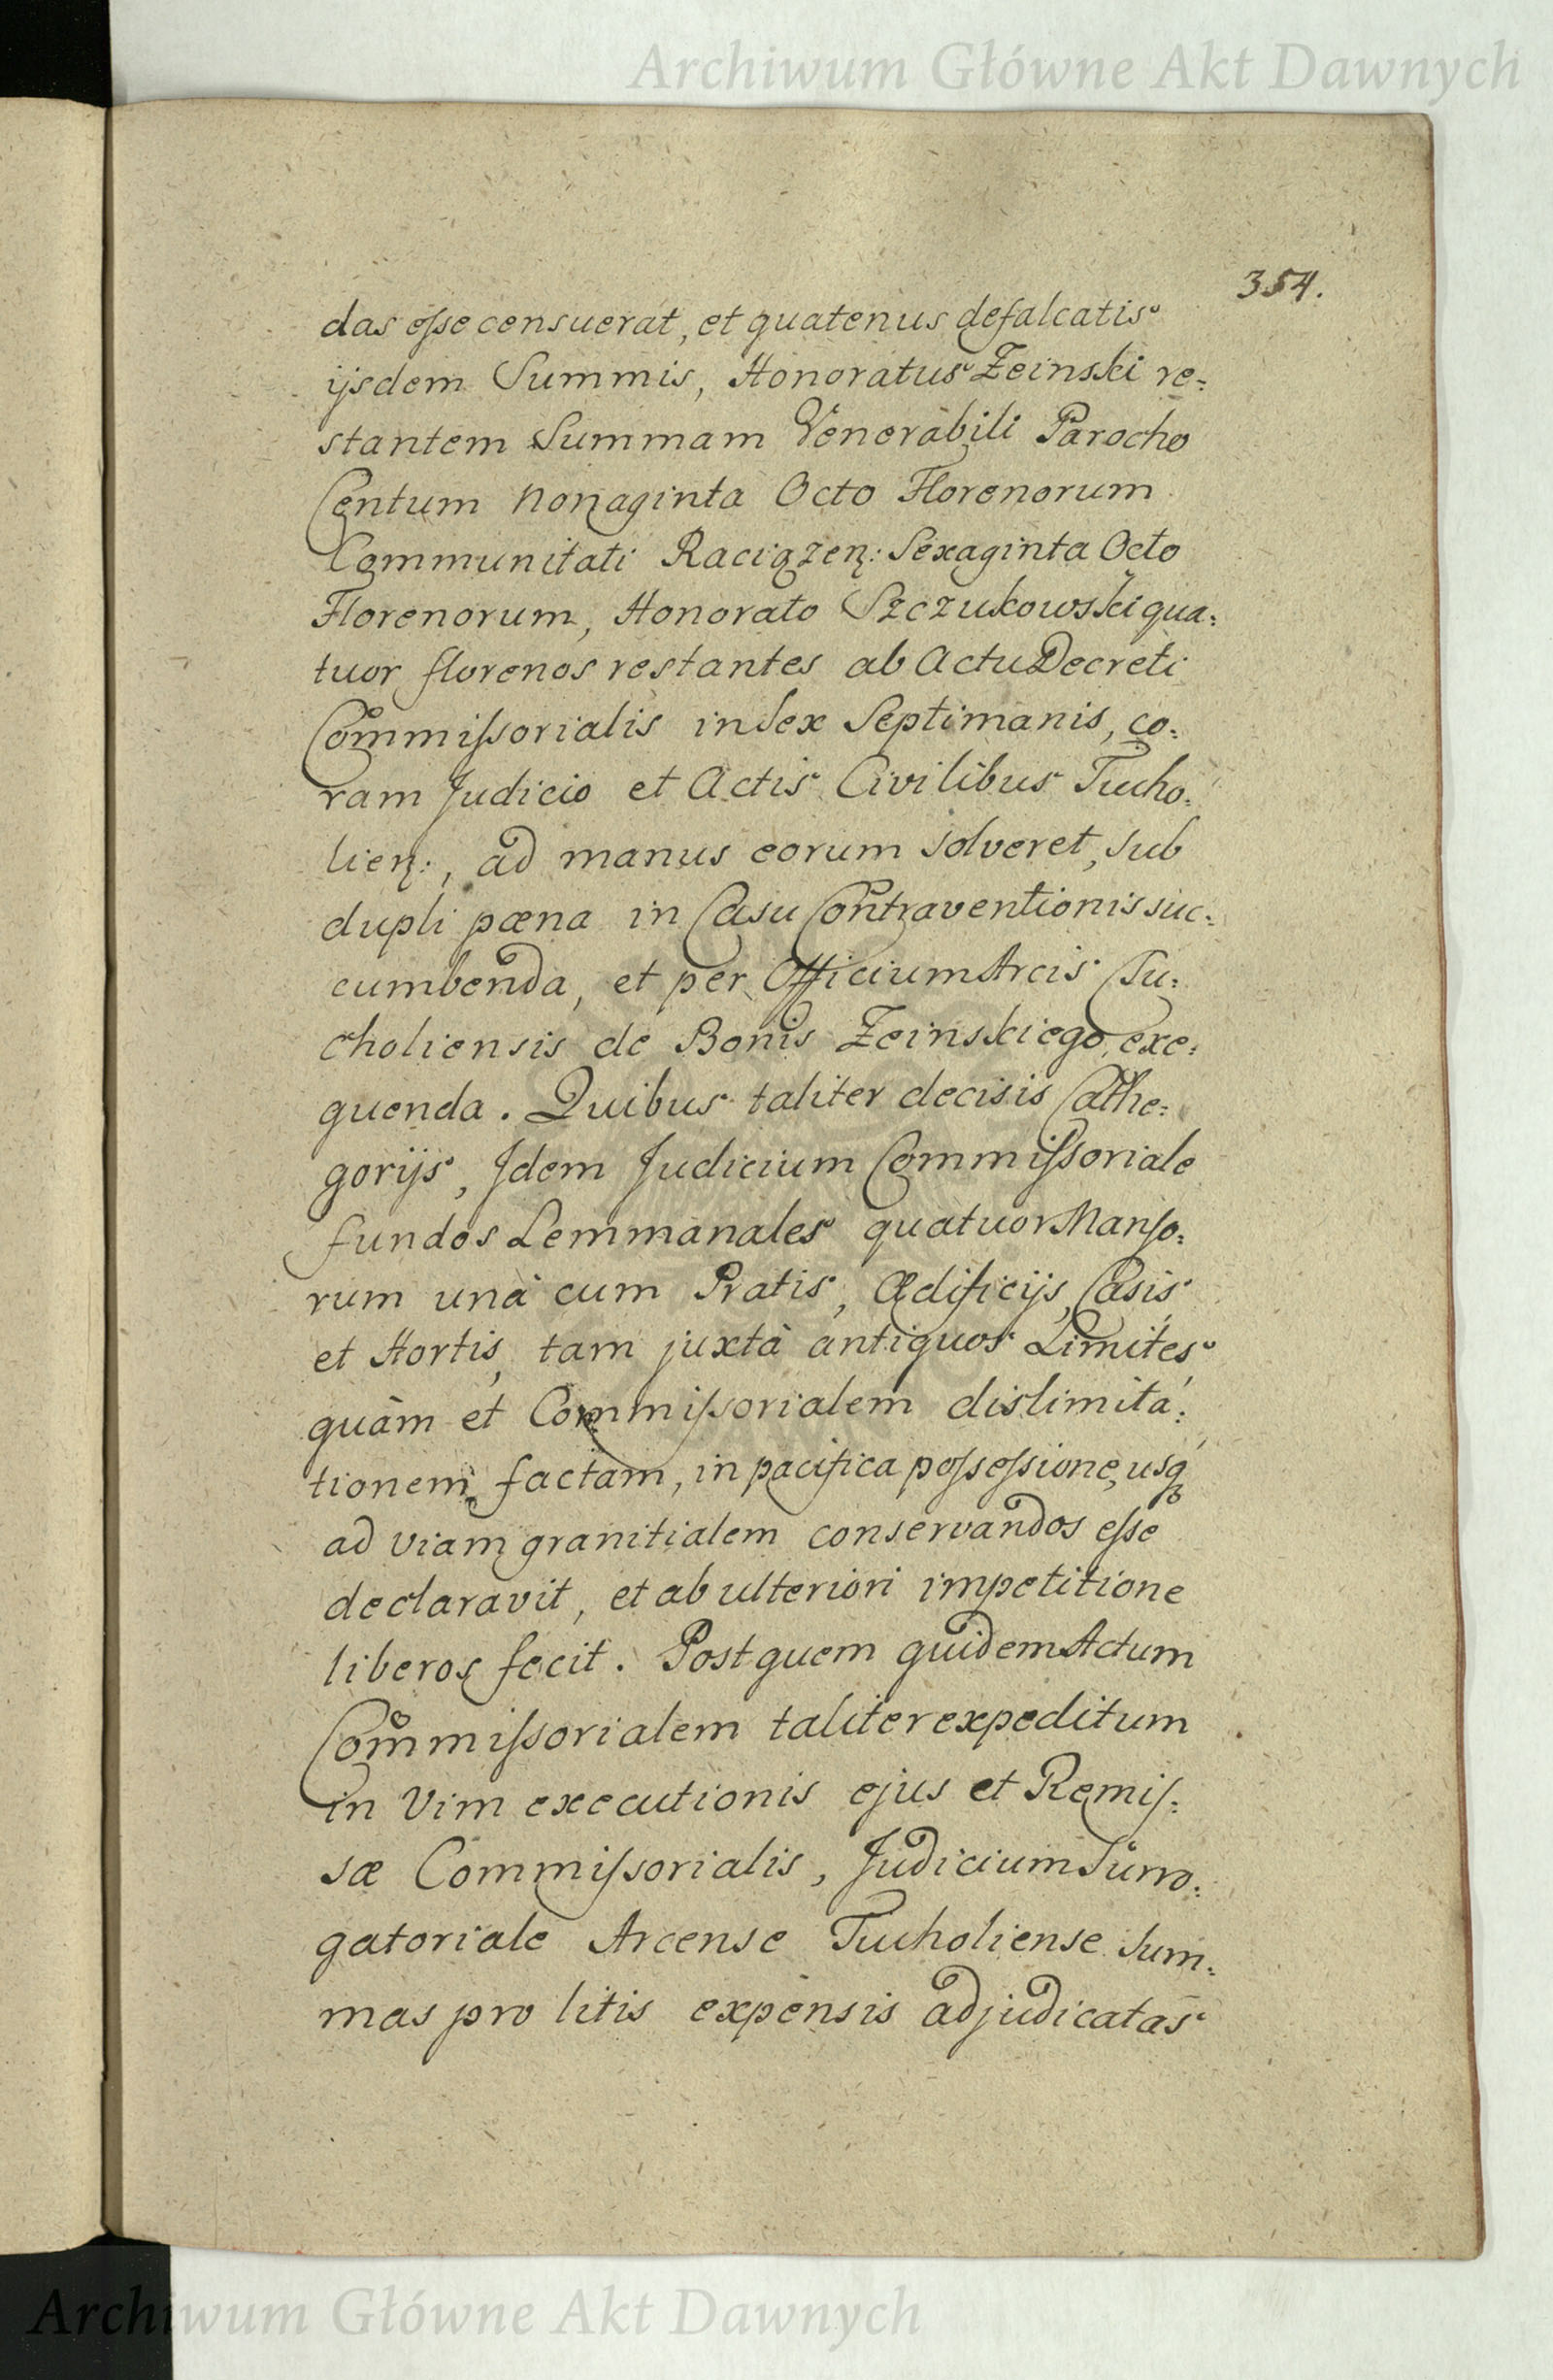 Archiwum Główne Akt Dawnych
354.
das esse censuerat, et quatenus defalcatis
ijsdem Summis, Honoratus Zeinski re:
stantem Summam Venerabili Parocho
Centum Nonaginta Octo Florenorum
Communitati Raciązen: Sexaginta Octo
Florenorum, Honorato Szczukowski qua:
tuor florenos restantes ab Actu Decreti
Commissorialis in Sex Septimanis, co:
ram Judicio et Actis Civilibus Tucho:
lien:, ad manus eorum solveret, sub
dupli pæna in Casu Contraventionis suc:
cumbenda, et per Officium Arcis Tu:
choliensis de Bonis Zeinskiego exe:
quenda. Quibus taliter decisis Cathe:
gorijs, Idem Judicium Commissoriale
fundos Lemmanales quatuor Manso:
rum unà cum Pratis, Ædificijs, Casis
et Hortis, tam juxtà antiquos Limites
quàm et Commissorialem dislimita:
tionem factam, in pacifica possessione, usq
ad viam granitialem conservandos esse
declaravit, et ab ulteriori impetitione
liberos fecit. Post quem quidem Actum
Commissorialem taliter expeditum
in Vim executionis ejus et Remis:
sæ Commissorialis, Judicium Surro:
gatoriale Arcense Tucholiense Sum:
mas pro litis expensis adjudicatas
Archiwum Główne Akt Dawnych